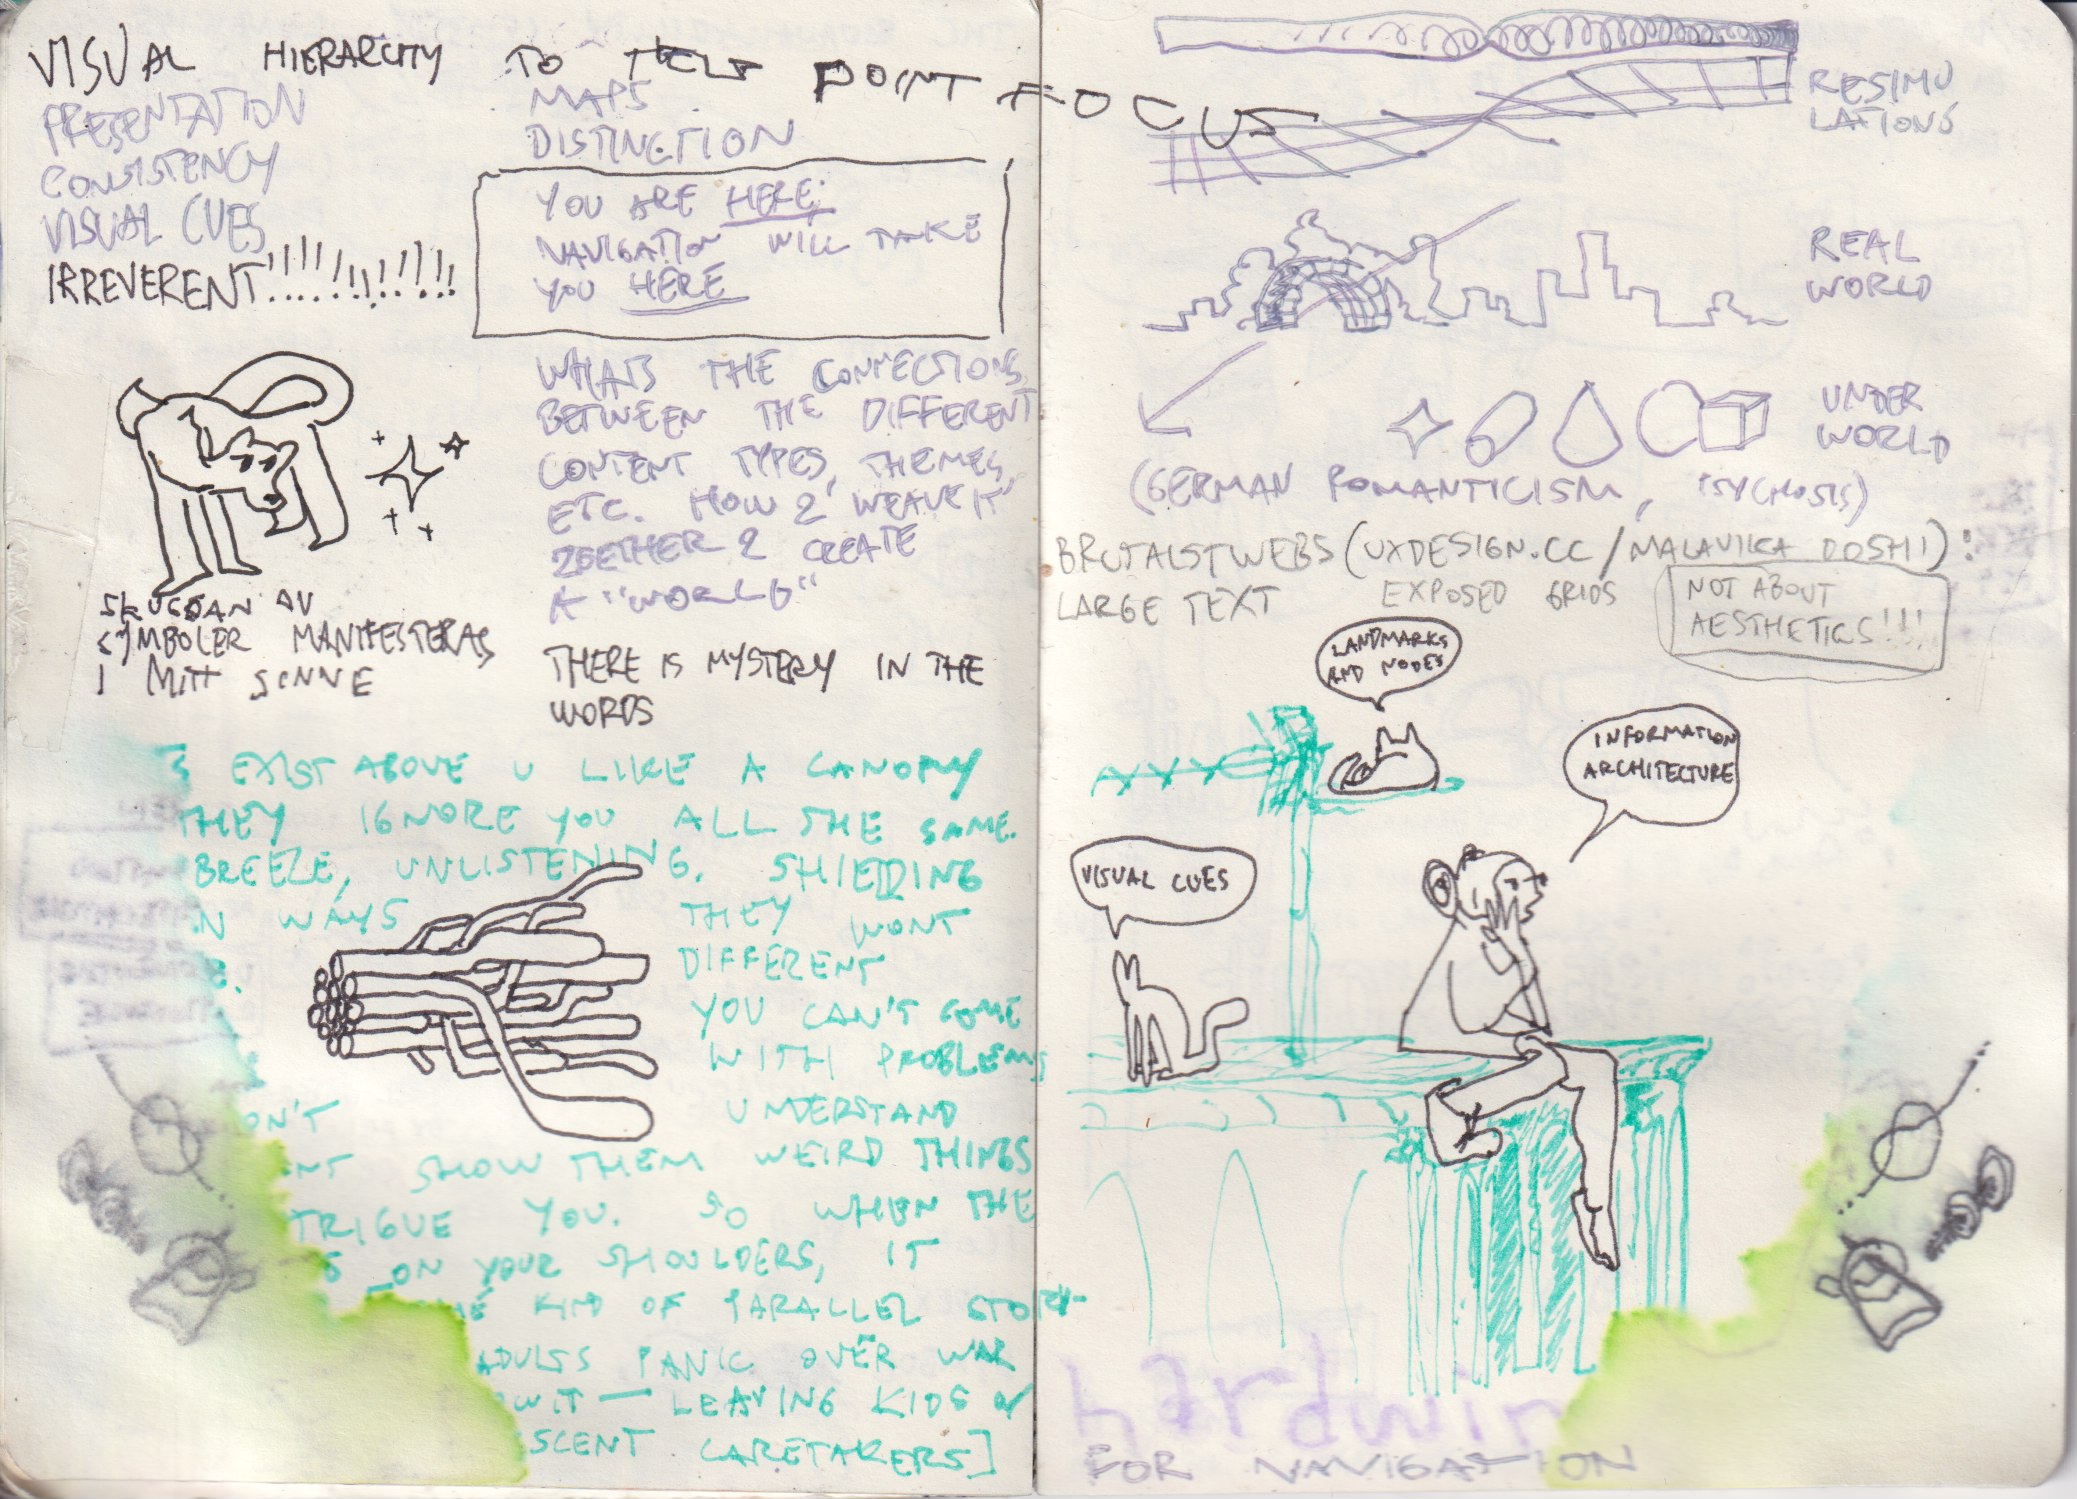 VISUAL HIERARCITY TO HELP POINT FOCUS
PRESENTATION
CONSISTENCY
VISUAL CUES
IRREVERENT!!!!!!!!!!!!
MAPS
DISTINCTION
YOU ARE HERE;
NAVIGATION WILL TAKE
YOU HERE
WHATS THE CONNECTIONS
BETWEEN THE DIFFERENT
CONTENT TYPES, THEMES,
ETC. HOW 2 "WEAVE IT
2GETHER 2 CREATE
A "WORLD"
THERE IS MYSTERY IN THE
WORDS
SKUGGAN AV
SYMBOLER MANIFESTERAS
I MITT SINNE
EXIST ABOVE U LIKE A CANOPY
THEY IGNORE YOU ALL THE SAME.
BREEZE, UNLISTENING. SHIELDING
N WAYS THEY WONT
DIFFERENT
YOU CAN'T COME
WITH PROBLEMS
ON'T UNDERSTAND
NT SHOW THEM WEIRD THINGS
TRIGUE YOU. SO WHEN THE
S ON YOUR SHOULDERS, IT
KIND OF PARALLEL STORY-
ADULTS PANIC OVER WAR
WIT — LEAVING KIDS W/
SCENT CARETAKERS]
RESIMU
LATIONS
REAL
WORLD
UNDER
WORLD
(GERMAN ROMANTICISM, PSYCHOSIS)
BRUTALSTWEBS (UXDESIGN.CC/MALAVIKA DOSHI):
LARGE TEXT EXPOSED GRIDS
NOT ABOUT
AESTHETICS!!!
LANDMARKS
AND NODES
INFORMATION
ARCHITECTURE
VISUAL CUES
hardwir
FOR NAVIGATION